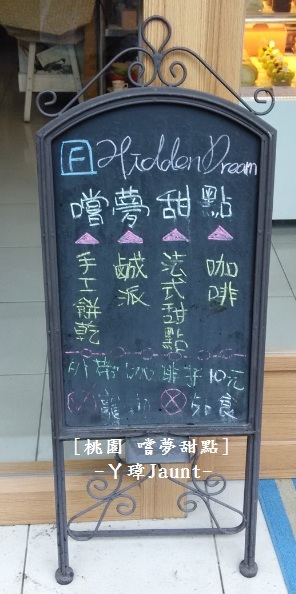 F Hidden Dream
嚐夢甜點
手工餅乾
鹹派
法式甜點
咖啡
外帶咖啡折10元
[桃園 嚐夢甜點]
-ㄚ瑋Jaunt-